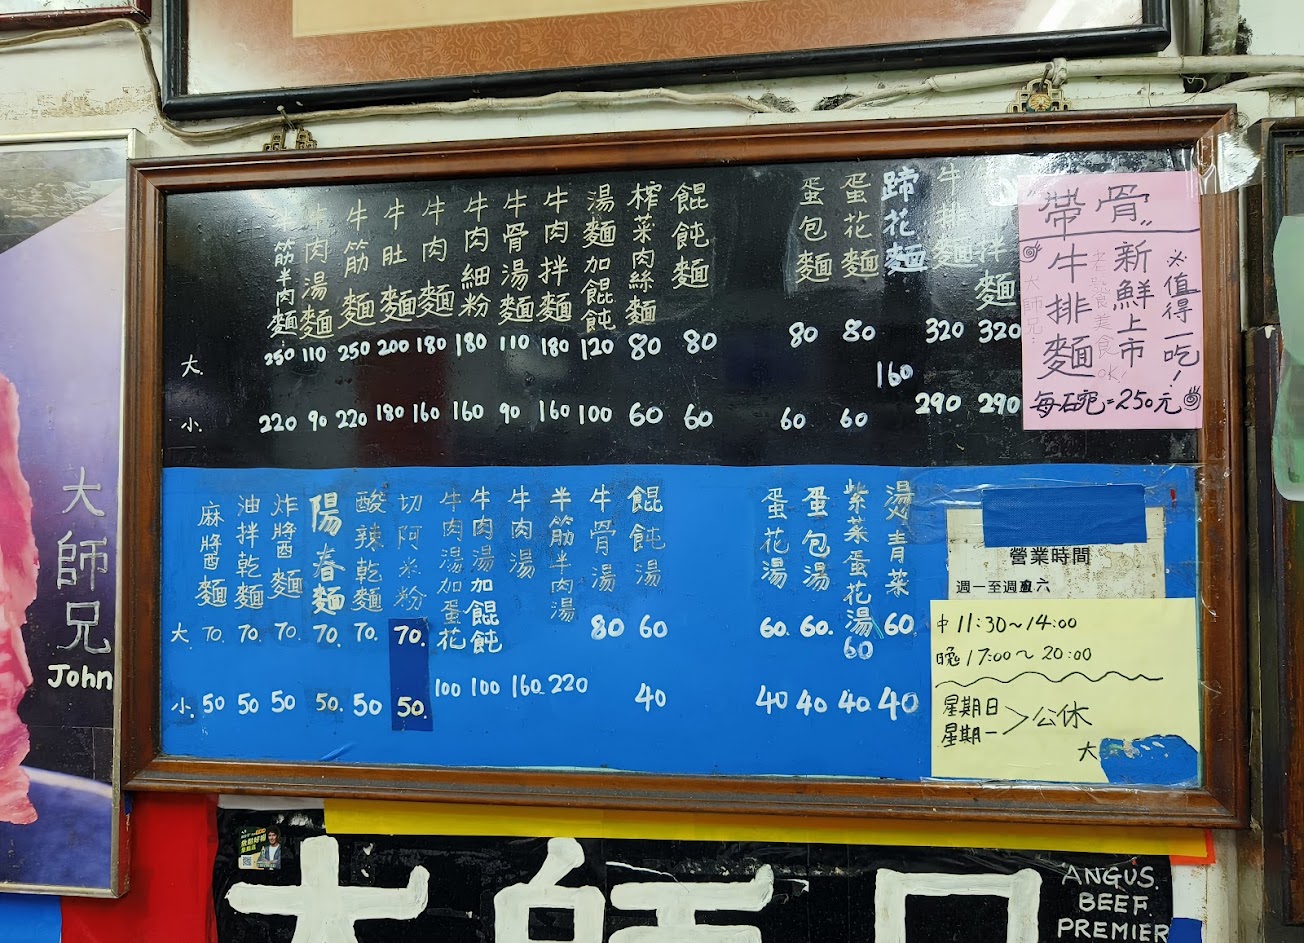 餛飩麵 80 60
榨菜肉絲麵 80 60
湯麵加餛飩 120 100
牛肉拌麵 180 160
牛骨湯麵 110 90
牛肉細粉 180 160
牛肉麵 180 160
牛肚麵 200 180
牛筋麵 250 220
牛肉湯麵 110 90
半筋半肉麵 250 220
拌麵 320 290
牛排麵 320 290
蹄花麵 160
蛋花麵 80 60
蛋包麵 80 60
大.
小.
"帶骨"
牛排麵
新鮮上市
※值得一吃!
老饕美食OK!
大師兄:
每碗=250元
燙青菜 60 40
紫菜蛋花湯 60 40
蛋包湯 60. 40
蛋花湯 60. 40
餛飩湯 60 40
牛骨湯 80
半筋半肉湯 220
牛肉湯 160
牛肉湯加餛飩 100
牛肉湯加蛋花 100
切阿米粉 70. 50.
酸辣乾麵 70. 50
陽春麵 70. 50.
炸醬麵 70. 50
油拌乾麵 70. 50
麻醬麵 70. 50
大.
小.
營業時間
週一至週六
中 11:30~14:00
晚 17:00~20:00
星期日
星期一
公休
大
大師兄
John
大師兄
ANGUS.
BEEF.
PREMIER